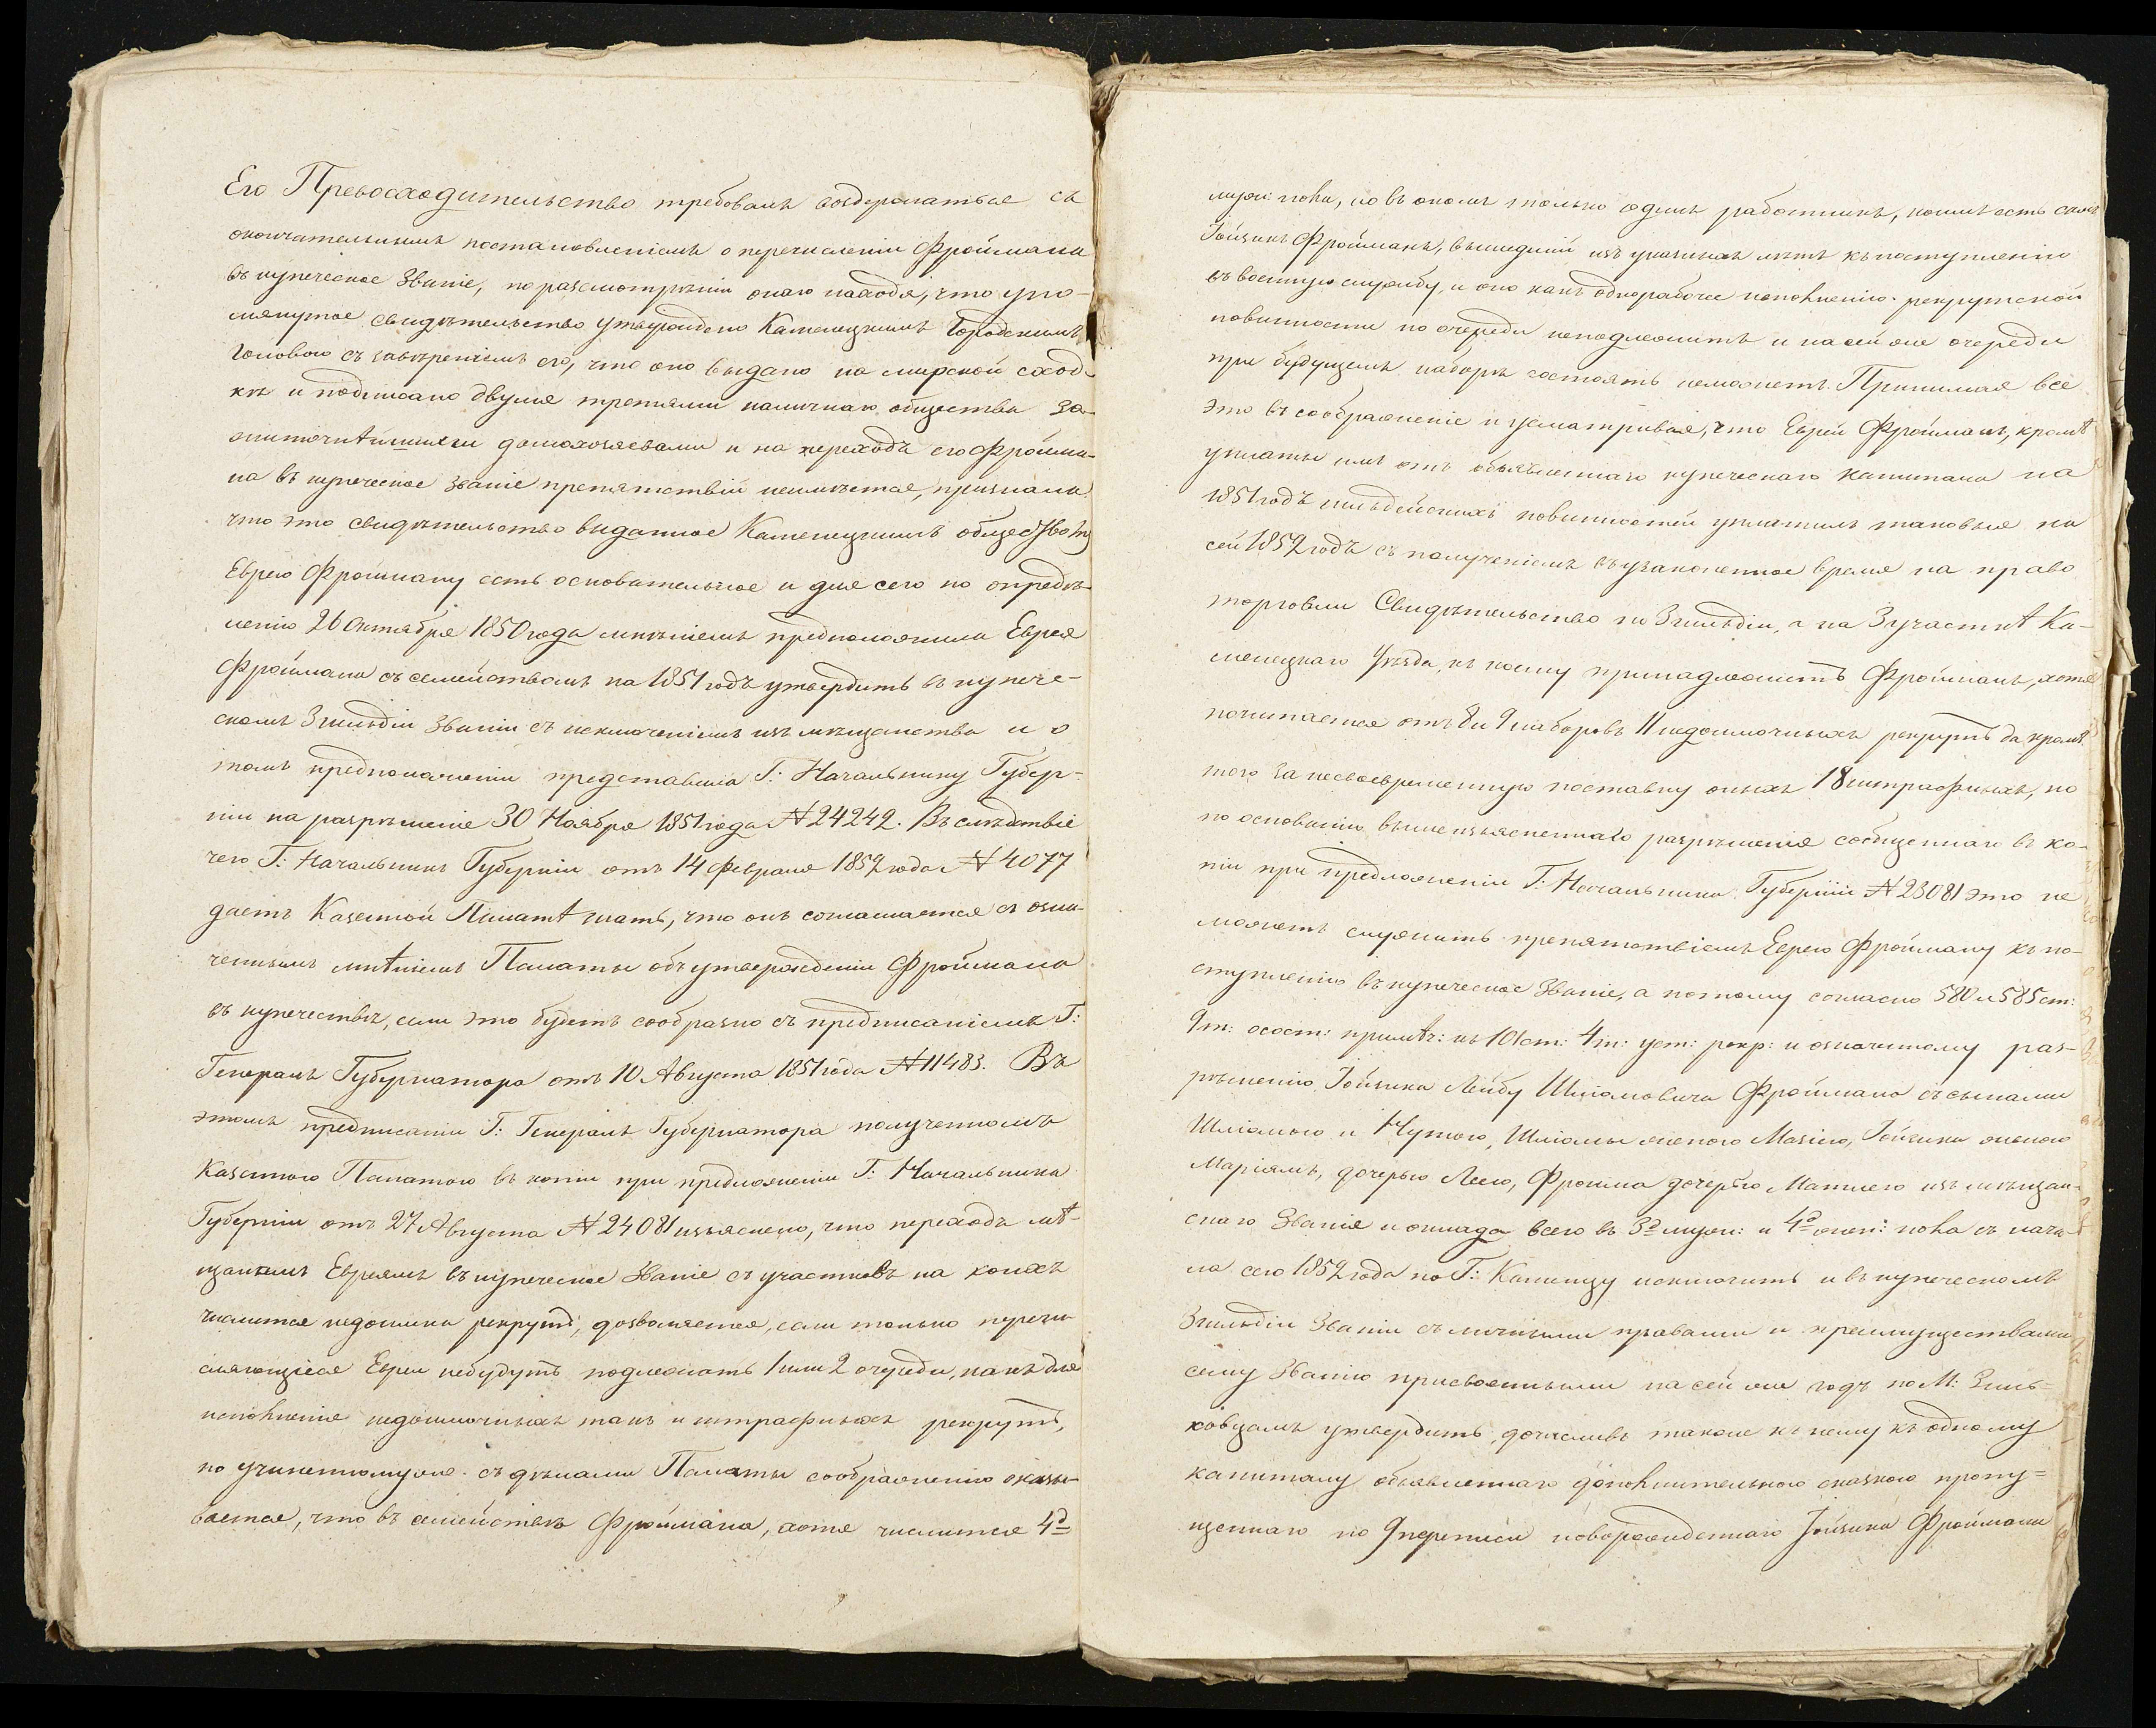 Его Превосходительство требовалъ воздержаться съ
окончательнымъ постановленіемъ о перечисленіи Фроймана
въ купеческое званіе, поразсмотрѣніи онаго находя, что упо-
мянутое свидѣтельство утверждено Каменецкимъ Городскимъ
Головою съ завѣреніемъ его, что оно выдано на мирской сход-
кѣ и подписано двумя третями наличнаго общества за-
житочнѣйшими домохозяевами и на переходъ его Фройма-
на въ купеческое званіе препятствій неимѣется, признала
что это свидѣтельство выданное Каменецкимъ обществомъ
Еврею Фройману есть основательное и для сего по опредѣ-
ленію 26 Октября 1850 года мнѣніемъ предположила Еврея
Фроймана съ семействомъ на 1851 годъ утвердить въ купече-
скомъ 3 гильдіи званіи съ исключеніемъ изъ мѣщанства и о
томъ предположеніи представила Г: Начальнику Губер-
ніи на разрѣшеніе 30 Ноября 1851 года № 24242. Въслѣдствіе
чего Г: Начальникъ Губерніи отъ 14 Февраля 1852 года № 4077
даетъ Казенной Палатѣ знать, что онъ соглашается съ озна-
ченнымъ мнѣніемъ Палаты объ утвержденіи Фроймана
въ купечествѣ, если это будетъ сообразно съ предписаніемъ Г:
Генералъ Губернатора отъ 10 Августа 1851 года № 11483. Въ
этомъ предписаніи Г: Генералъ Губернатора полученномъ
Казенною Палатою въ копіи при предложеніи Г: Начальника
Губерніи отъ 27 Августа № 24081 изъяснено, что переходъ мѣ-
щанамъ Евреямъ въ купеческое званіе съ участковъ на коихъ
числится недоимка рекрутъ, дозволяется, если только перечи
сляющіеся Евреи небудутъ подлежать 1 или 2 очереди, какъ для
исполненія недоимочныхъ такъ и штрафныхъ рекрутъ,
по учиненномуже съ дѣлами Палаты соображенію оказы-
вается, что въ семействѣ Фроймана, хотя числится 4д
муж: пола, но въ ономъ только одинъ работникъ, коимъ есть самъ
Іойзикъ Фройманъ, вышедшій изъ указныхъ лѣтъ къ поступленію
въ военную службу, и оно какъ однорабочее исполненію рекрутской
повинности по очереди неподлежитъ и на сей же очереди
при будущемъ наборѣ состоять неможетъ. Принимая все
это въ соображеніе и усматривая, что Еврей Фройманъ, кромѣ
уплаты имъ отъ объявленнаго купеческаго капитала на
1851 годъ гильдейскихъ повинностей уплатилъ таковыя на
сей 1852 годъ съ полученіемъ въ узаконенное время на право
торговли Свидѣтельство по 3 гильдіи, а на 3 участкѣ Ка-
менецкаго Уѣзда, къ коему принадлежитъ Фройманъ, хотя
почитается отъ 8 и 9 наборовъ 11 недоимочныхъ рекрутъ да кромѣ
того за несвоевременную поставку оныхъ 18 штрафныхъ, но
по основанію вышеизъясненнаго разрѣшенія сообщеннаго въ ко-
піи при предложеніи Г: Начальника Губерніи № 23081 это не
можетъ служить препятствіемъ Еврею Фройману къ по-
ступленію въ купеческое званіе, а потому согласно 580 и 585 ст:
9 т: осост: примѣч: къ 101 ст: 4 т: уст: рекр: и означенному раз-
рѣшенію Іойзика Лейбу Шліомовича Фроймана съ сынами
Шліомою и Нутою, Шліомы женою Масіею, Іойзика женою
Маріямъ, дочерью Леею, Фроима дочерью Матлею изъ мѣщан-
скаго званія и оклада всего въ 3д муж: и 4д жен: пола съ нача-
ла сего 1852 года по Г: Каменцу исключить и въ купеческомъ
3 гильдіи званіи съ личными правами и преимуществами
сему званію присвоенными на сей же годъ по М: Зинь=
ковцамъ утвердить, дочисливъ такоже къ нему къ одному
капиталу объявленнаго дополнительною сказкою пропу=
щеннаго по 9 переписи новорожденнаго Іойзика Фроймана